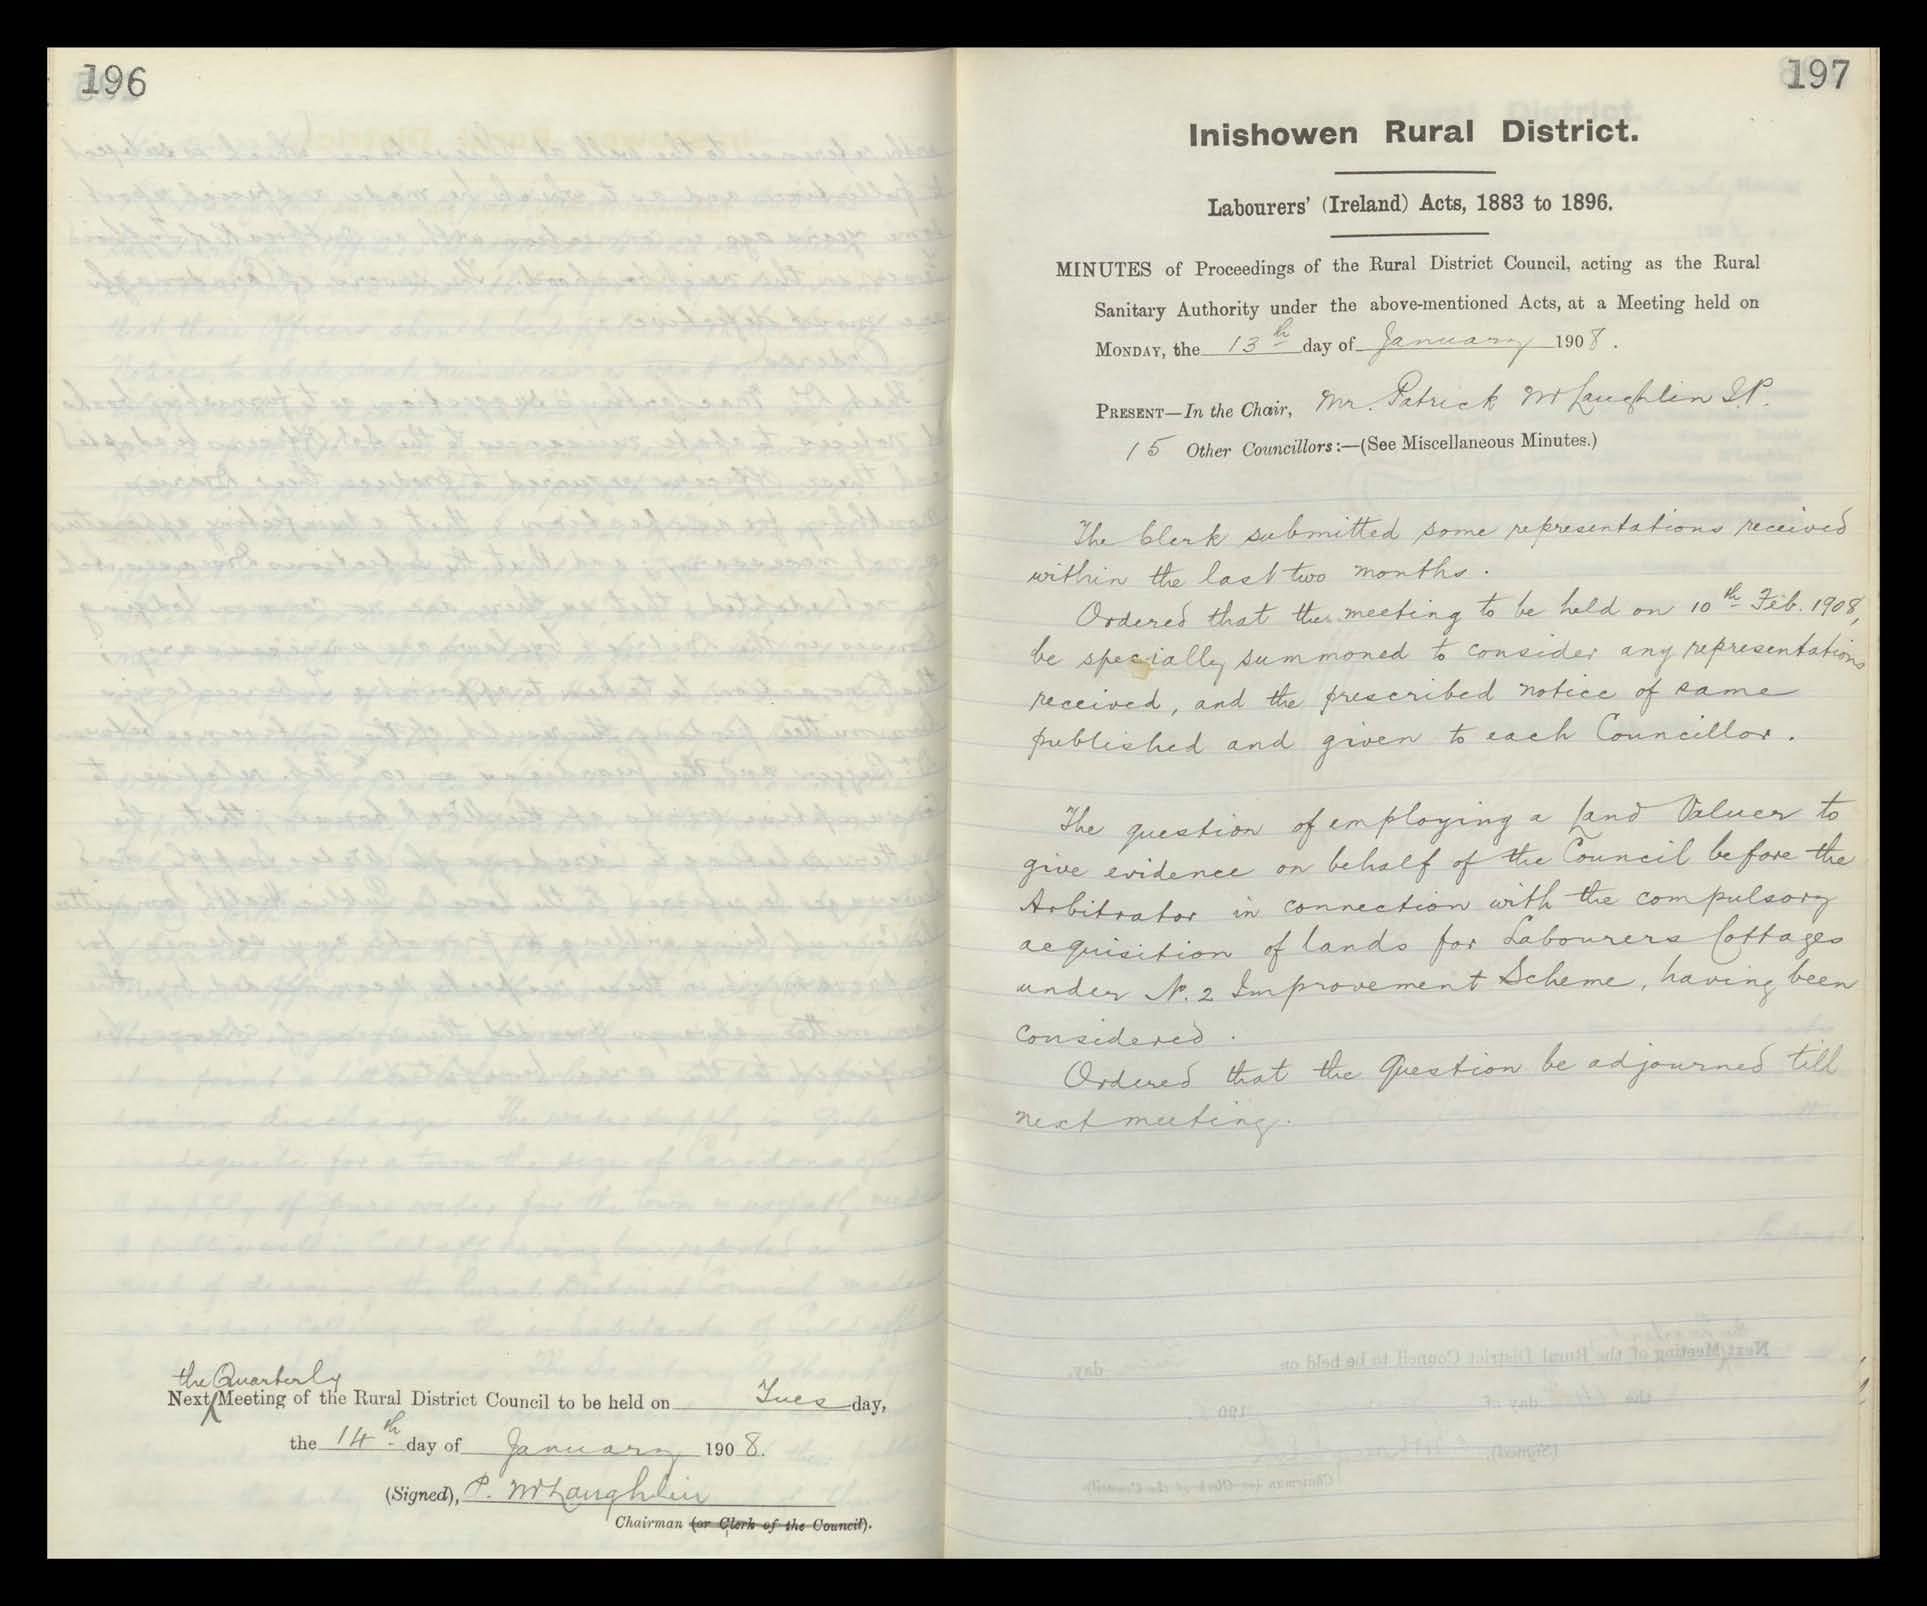 196
the Quarterly
Next Meeting of the Rural District Council to be held on Tues day,
the 14th day of January 1908.
(Signed), P. McLaughlin
Chairman (or Clerk of the Council).
197
Inishowen Rural District.
Labourers' (Ireland) Acts, 1883 to 1896.
MINUTES of Proceedings of the Rural District Council, acting as the Rural
Sanitary Authority under the above-mentioned Acts, at a Meeting held on
MONDAY, the 13th day of January 1908.
PRESENT—In the Chair, Mr. Patrick McLaughlin J.P.
15 Other Councillors:—(See Miscellaneous Minutes.)
The Clerk submitted some representations received
within the last two months.
Ordered that the meeting to be held on 10th Feb. 1908,
be specially summoned to consider any representations
received, and the prescribed notice of same
published and given to each Councillor.
The question of employing a Land Valuer to
give evidence on behalf of the Council before the
Arbitrator in connection with the compulsory
acquisition of lands for Labourers Cottages
under No. 2 Improvement Scheme, having been
considered.
Ordered that the Question be adjourned till
next meeting.